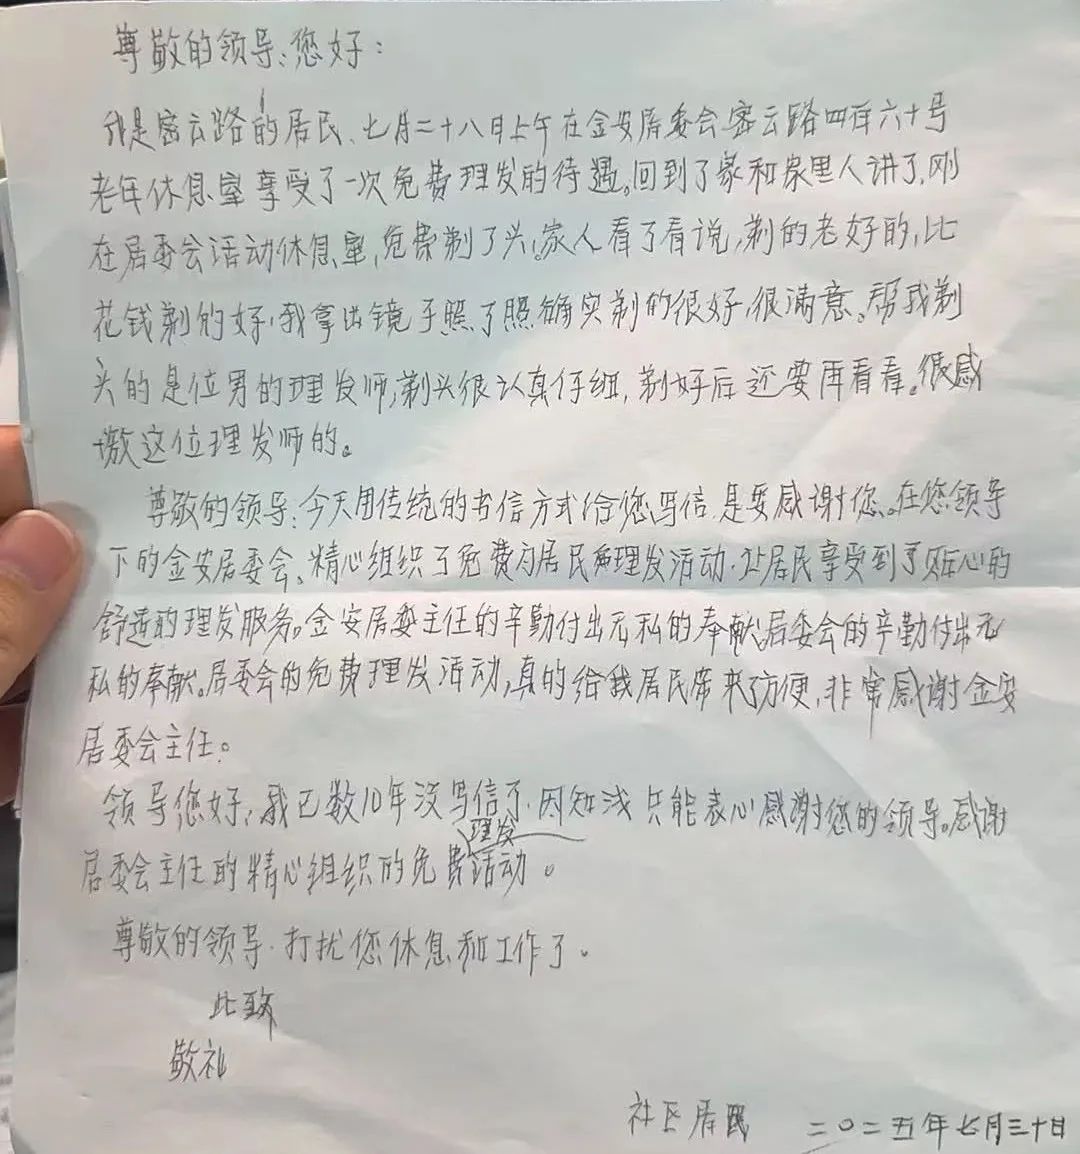 尊敬的领导:您好:
我是密云路的居民、七月二十八日上午在金安居委会密云路四百六十号
老年休息室享受了一次免费理发的待遇。回到了家和家里人讲了,刚
在居委会活动休息室,免费剃了头,家人看了看说,剃的老好的,比
花钱剃的好,我拿出镜子照了照确实剃的很好,很满意。帮我剃
头的是位男的理发师,剃头很认真仔细,剃好后还要再看看。很感
激这位理发师的。
尊敬的领导:今天用传统的书信方式给您写信是要感谢您。在您领导
下的金安居委会、精心组织了免费为居民理发活动.让居民享受到了贴心的
舒适的理发服务。金安居委主任的辛勤付出无私的奉献,居委会的辛勤付出无
私的奉献。居委会的免费理发活动,真的给我居民带来了方便,非常感谢金安
居委会主任。
领导您好,我已数10年没写信了.因知浅只能表心感谢您的领导。感谢
居委会主任的精心组织的免费理发活动。
尊敬的领导.打扰您休息和工作了。
此致
敬礼
社区居民 二〇二五年七月三十日